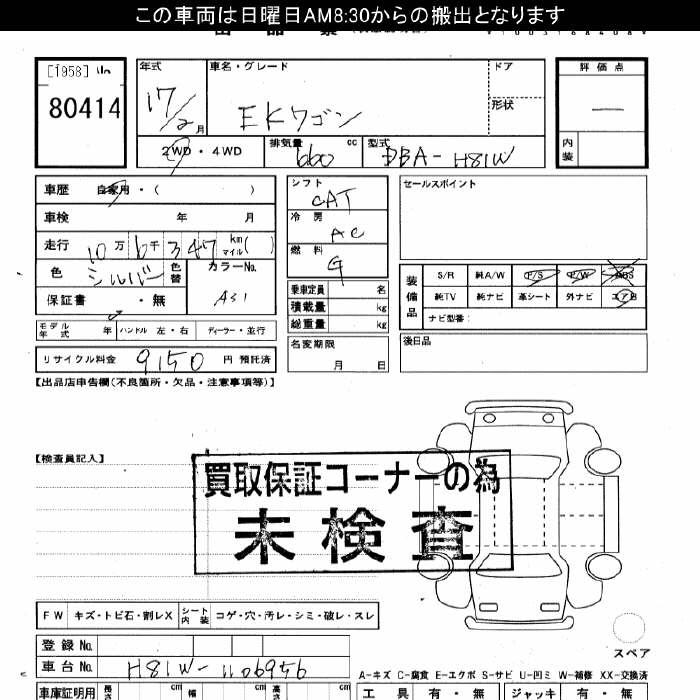 この車両は日曜日AM8:30からの搬出となります
[1958]
80414
年式
車名・グレード
ドア
評価点
17/2月
EKワゴン
形状
—
2WD・4WD
排気量 660 cc
型式 DBA-H81W
内装
車歴 自家用・( )
シフト CAT
セールスポイント
車検 年 月
冷房 AC
走行 10万6千347km マイル( )
燃料 G
色 シルバー 色替
カラーNo. A31
乗車定員 名
装備品
S/R 純A/W P/S P/W ABS
保証書 ・無
積載量 kg
純TV 純ナビ 革シート 外ナビ エアB
総重量 kg
ナビ型番:
モデル年式 年 ハンドル 左・右 ディーラー・並行
名変期限 月 日
後日品
リサイクル料金 9150 円 預託済
【出品店申告欄(不良箇所・欠品・注意事項等)】
【検査員記入】
買取保証コーナーの為
未検査
FW キズ・トビ石・割レX シート内装 コゲ・穴・汚レ・シミ・破レ・スレ
登録No.
スペア
車台No. H81W-1106956
A-キズ C-腐食 E-エクボ S-サビ U-凹ミ W-補修 XX-交換済
車庫証明用 長さ cm 幅 cm 高さ cm
工具 有・無 ジャッキ 有・無